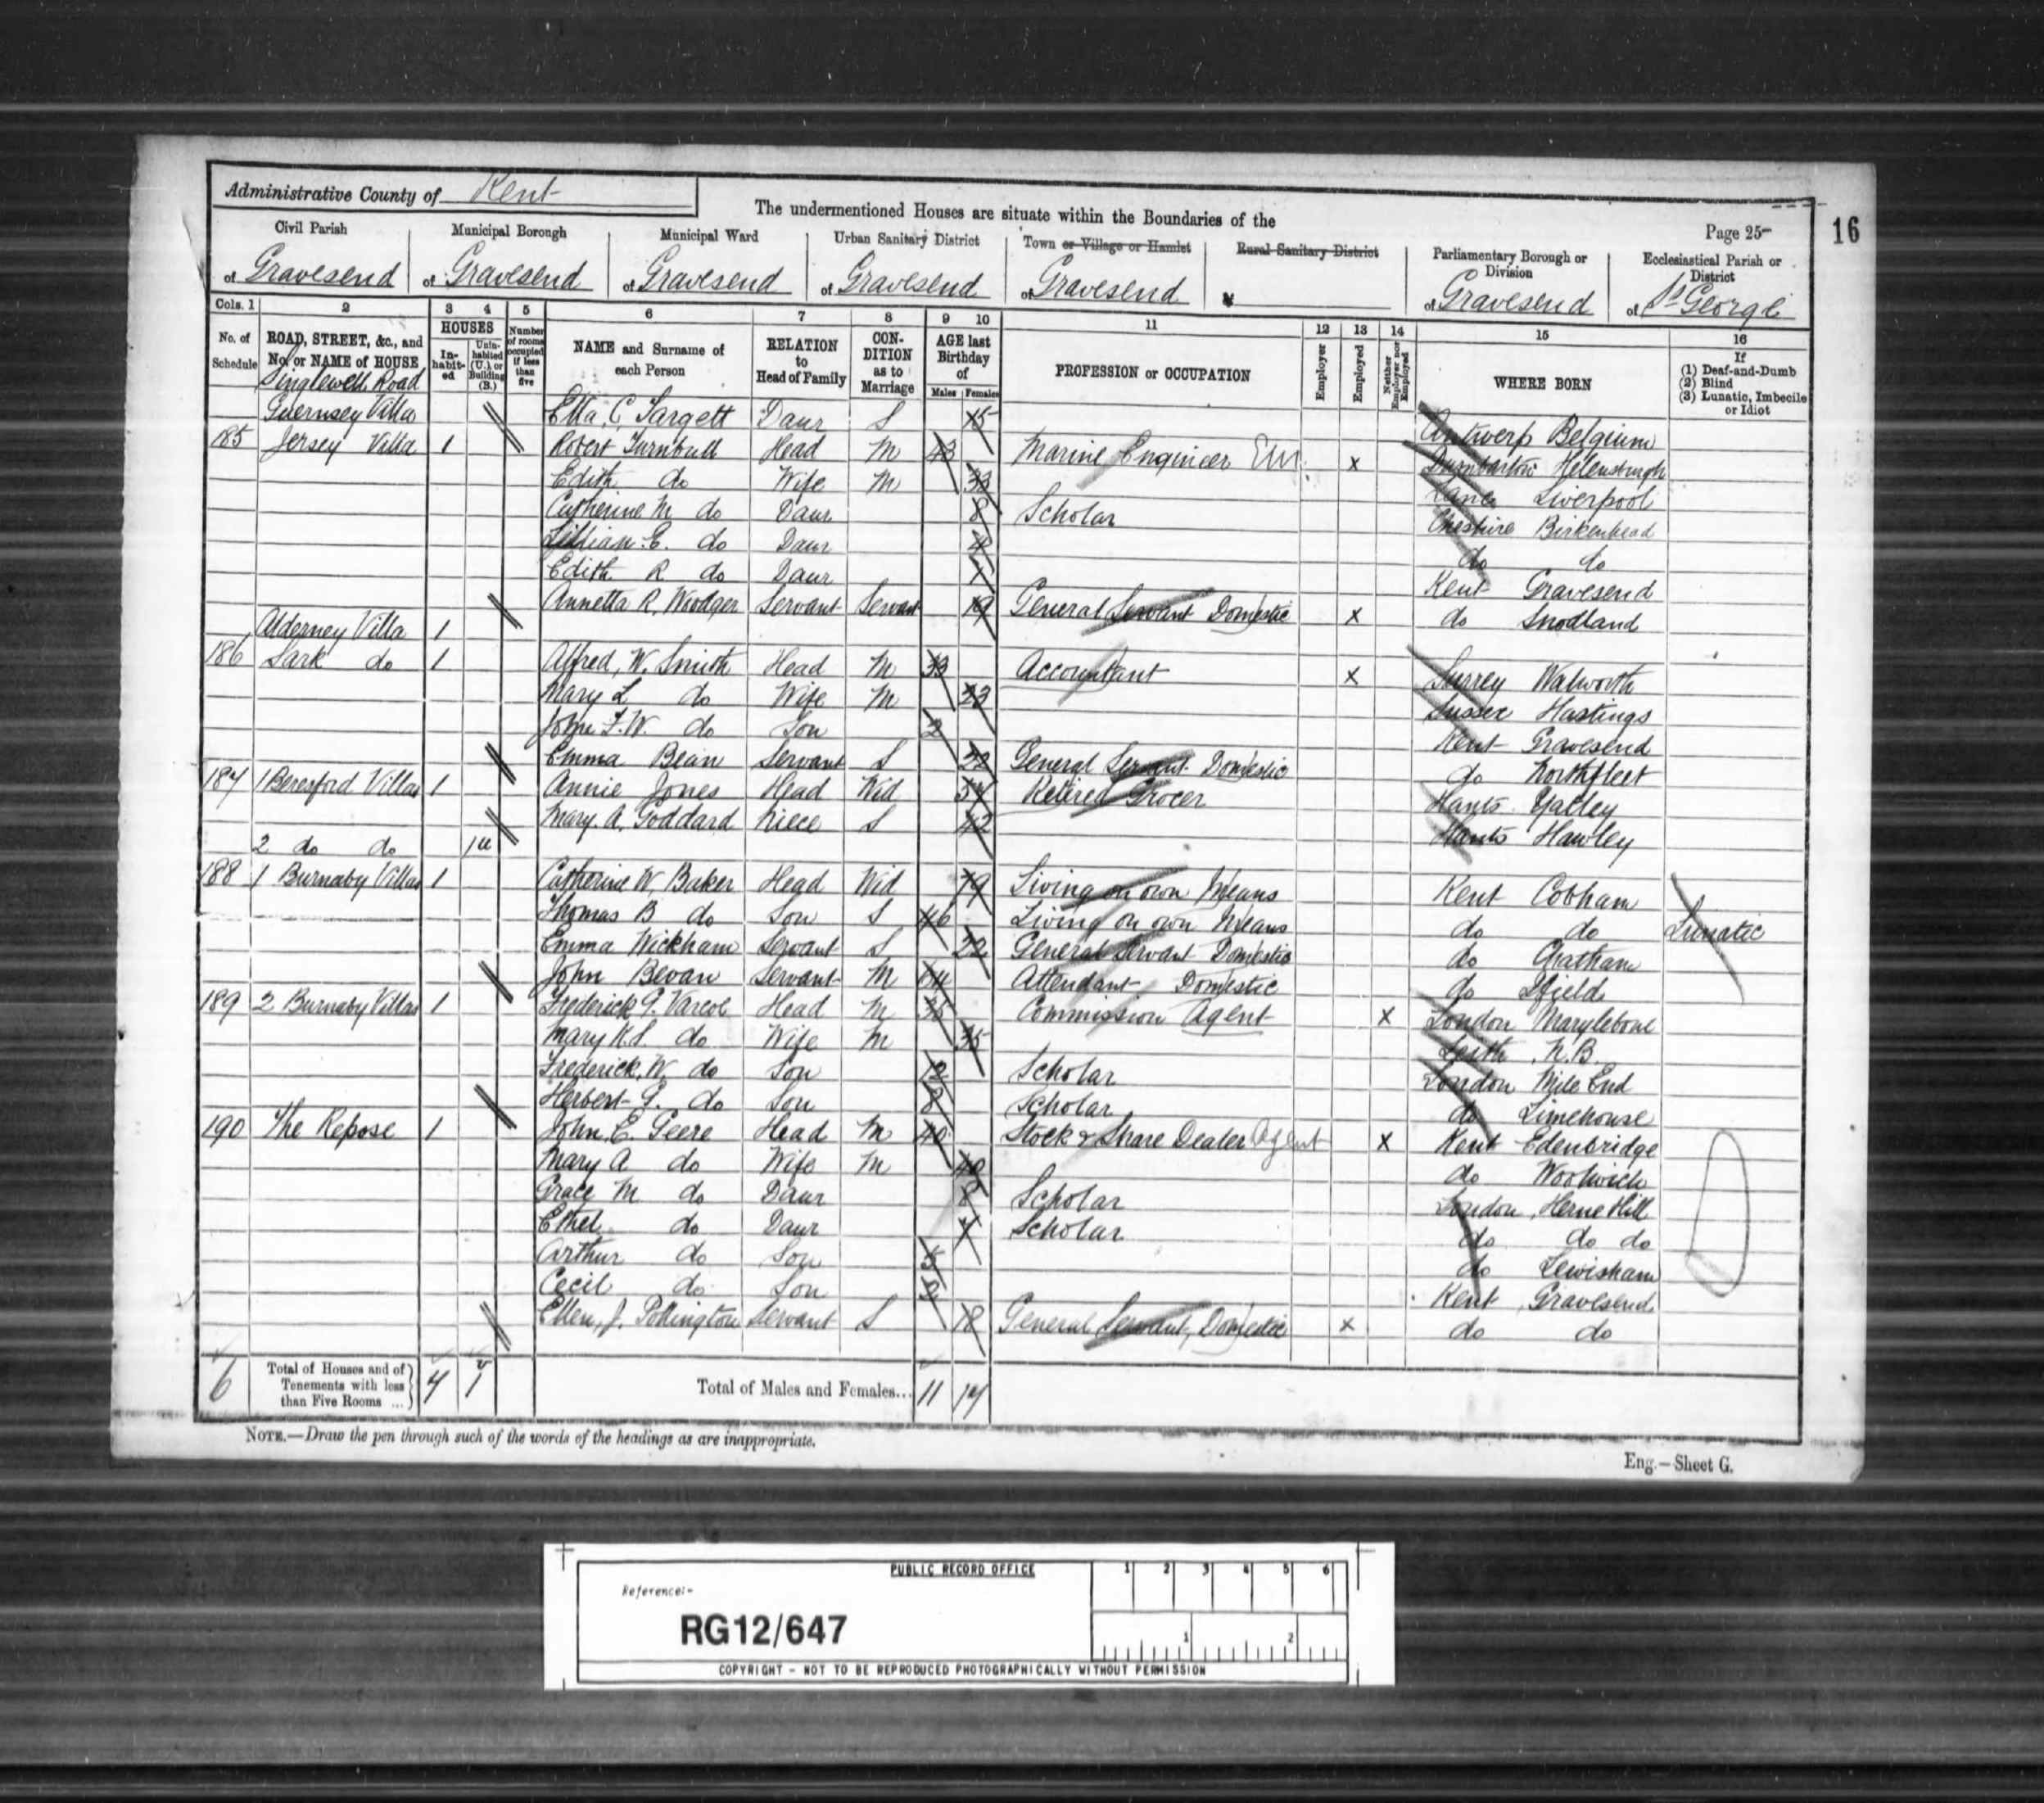 Administrative County of Kent
The undermentioned Houses are situate within the Boundaries of the
Page 25
16
Civil Parish
of Gravesend
Municipal Borough
of Gravesend
Municipal Ward
of Gravesend
Urban Sanitary District
of Gravesend
Town or Village or Hamlet
of Gravesend
Rural Sanitary District
Parliamentary Borough or Division
of Gravesend
Ecclesiastical Parish or District
of St George
Cols. 1 2 3 4 5 6 7 8 9 10 11 12 13 14 15 16
No. of Schedule
ROAD, STREET, &c., and No. or NAME of HOUSE
HOUSES
In-habit-ed
Unin-habited (U.), or Building (B.)
Number of rooms occupied if less than five
NAME and Surname of each Person
RELATION to Head of Family
CON-DITION as to Marriage
AGE last Birthday of
Males Females
PROFESSION or OCCUPATION
Employer
Employed
Neither Employer nor Employed
WHERE BORN
If
(1) Deaf-and-Dumb
(2) Blind
(3) Lunatic, Imbecile or Idiot
Singlewell Road
Guernsey Villa Ella C. Targett Daur S 15 Antwerp Belgium
185 Jersey Villa 1 Robert Turnbull Head M 43 Marine Engineer x Dumbarton Helensburgh
Edith do Wife M 33 Lanc Liverpool
Catherine M do Daur 8 Scholar Cheshire Birkenhead
Lillian E. do Daur 4 do do
Edith R do Daur 1 Kent Gravesend
Annetta R. Woodger Servant Servant 19 General Servant Domestic x do Snodland
Alderney Villa 1
186 Sark do 1 Alfred, W. Smith Head M 33 Accountant x Surrey Walworth
Mary L do Wife M 23 Sussex Hastings
John F. W. do Son 2 Kent Gravesend
Emma Bean Servant S 22 General Servant Domestic do Northfleet
187 1 Beresford Villas 1 Annie Jones Head Wid Retired Grocer Hants Yatley
Mary. A. Goddard Niece S 42 Hants Hawley
2 do do 1u
188 1 Burnaby Villas 1 Catherine W. Baker Head Wid 79 Living on own Means Kent Cobham
Thomas B do Son S 46 Living on own Means do do Lunatic
Emma Wickham Servant S 22 General Servant Domestic do Chatham
John Bevan Servant M 64 Attendant Domestic do Ifield
189 2 Burnaby Villas 1 Frederick G. Varcoe Head M 35 Commission Agent x London Marylebone
Mary K. S. do Wife M 35 Leith N.B.
Frederick. W. do Son 12 Scholar London Mile End
Herbert G. do Son 8 Scholar do Limehouse
190 The Repose 1 John. E. Geere Head M 40 Stock & Share Dealer Agent x Kent Edenbridge
Mary A do Wife M 40 do Woolwich
Grace M do Daur 8 Scholar London, Herne Hill
Ethel do Daur 7 Scholar do do do
Arthur do Son 5 do Lewisham
Cecil do Son Kent Gravesend
Ellen, J. Pollington Servant S 18 General Servant, Domestic x do do
6 Total of Houses and of Tenements with less than Five Rooms ... 7 1
Total of Males and Females... 11 17
NOTE.—Draw the pen through such of the words of the headings as are inappropriate.
Eng.—Sheet G.
PUBLIC RECORD OFFICE
1 2 3 4 5 6
Reference:-
RG12/647
1 2
COPYRIGHT - NOT TO BE REPRODUCED PHOTOGRAPHICALLY WITHOUT PERMISSION